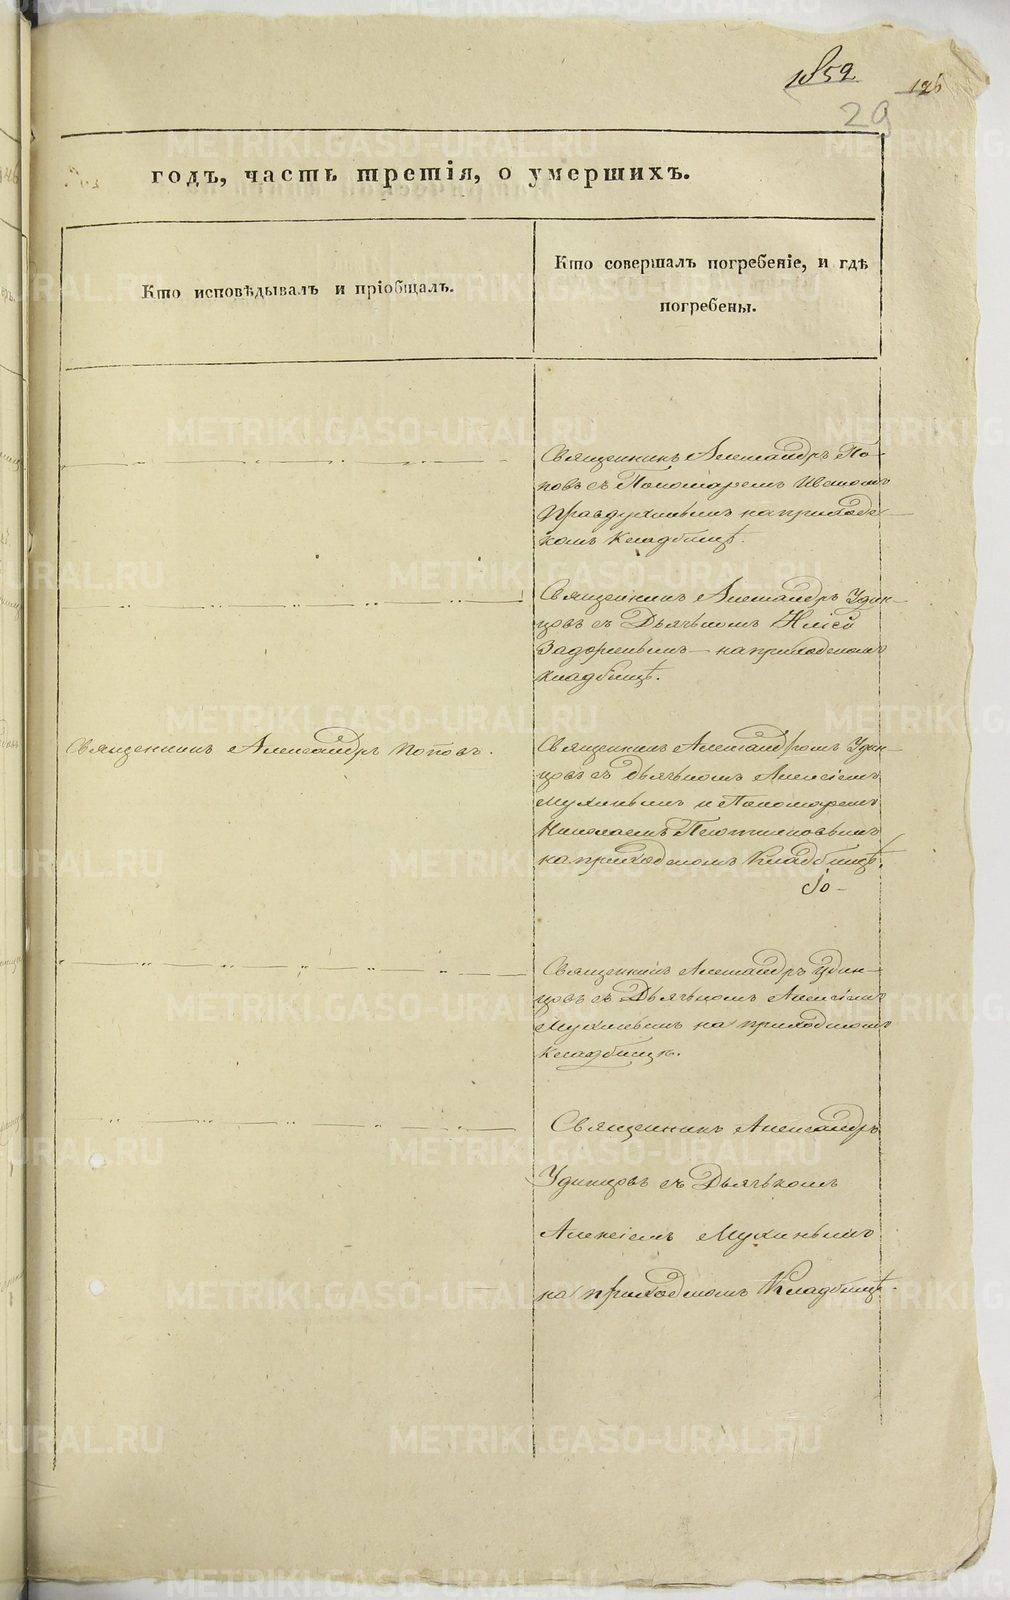 1852
126
29
годъ, часть третія, о умершихъ.
Кто исповѣдывалъ и пріобщалъ.
Кто совершалъ погребеніе, и гдѣ
погребены.
Священникъ Александръ По-
повъ съ Пономаремъ Иваномъ
Правдухинымъ на приходс-
комъ кладбищѣ.
Священникъ Александръ Удин-
цовъ съ Дьячкомъ
на приходскомъ
кладбищѣ.
Священникъ Александръ Поповъ.
Священникъ Александромъ Удин-
цовъ съ дьячкомъ Алексіемъ
Мухинымъ и Пономаремъ
Николаемъ
на приходскомъ Кладбищѣ.
Священникъ Александръ Удин-
цовъ съ Дьячкомъ Алексіемъ
Мухинымъ на приходскомъ
кладбищѣ.
Священникъ Александръ
Удинцовъ съ Дьячкомъ
Алексіемъ Мухинымъ
на приходскомъ Кладбищѣ.
METRIKI.GASO-URAL.RU